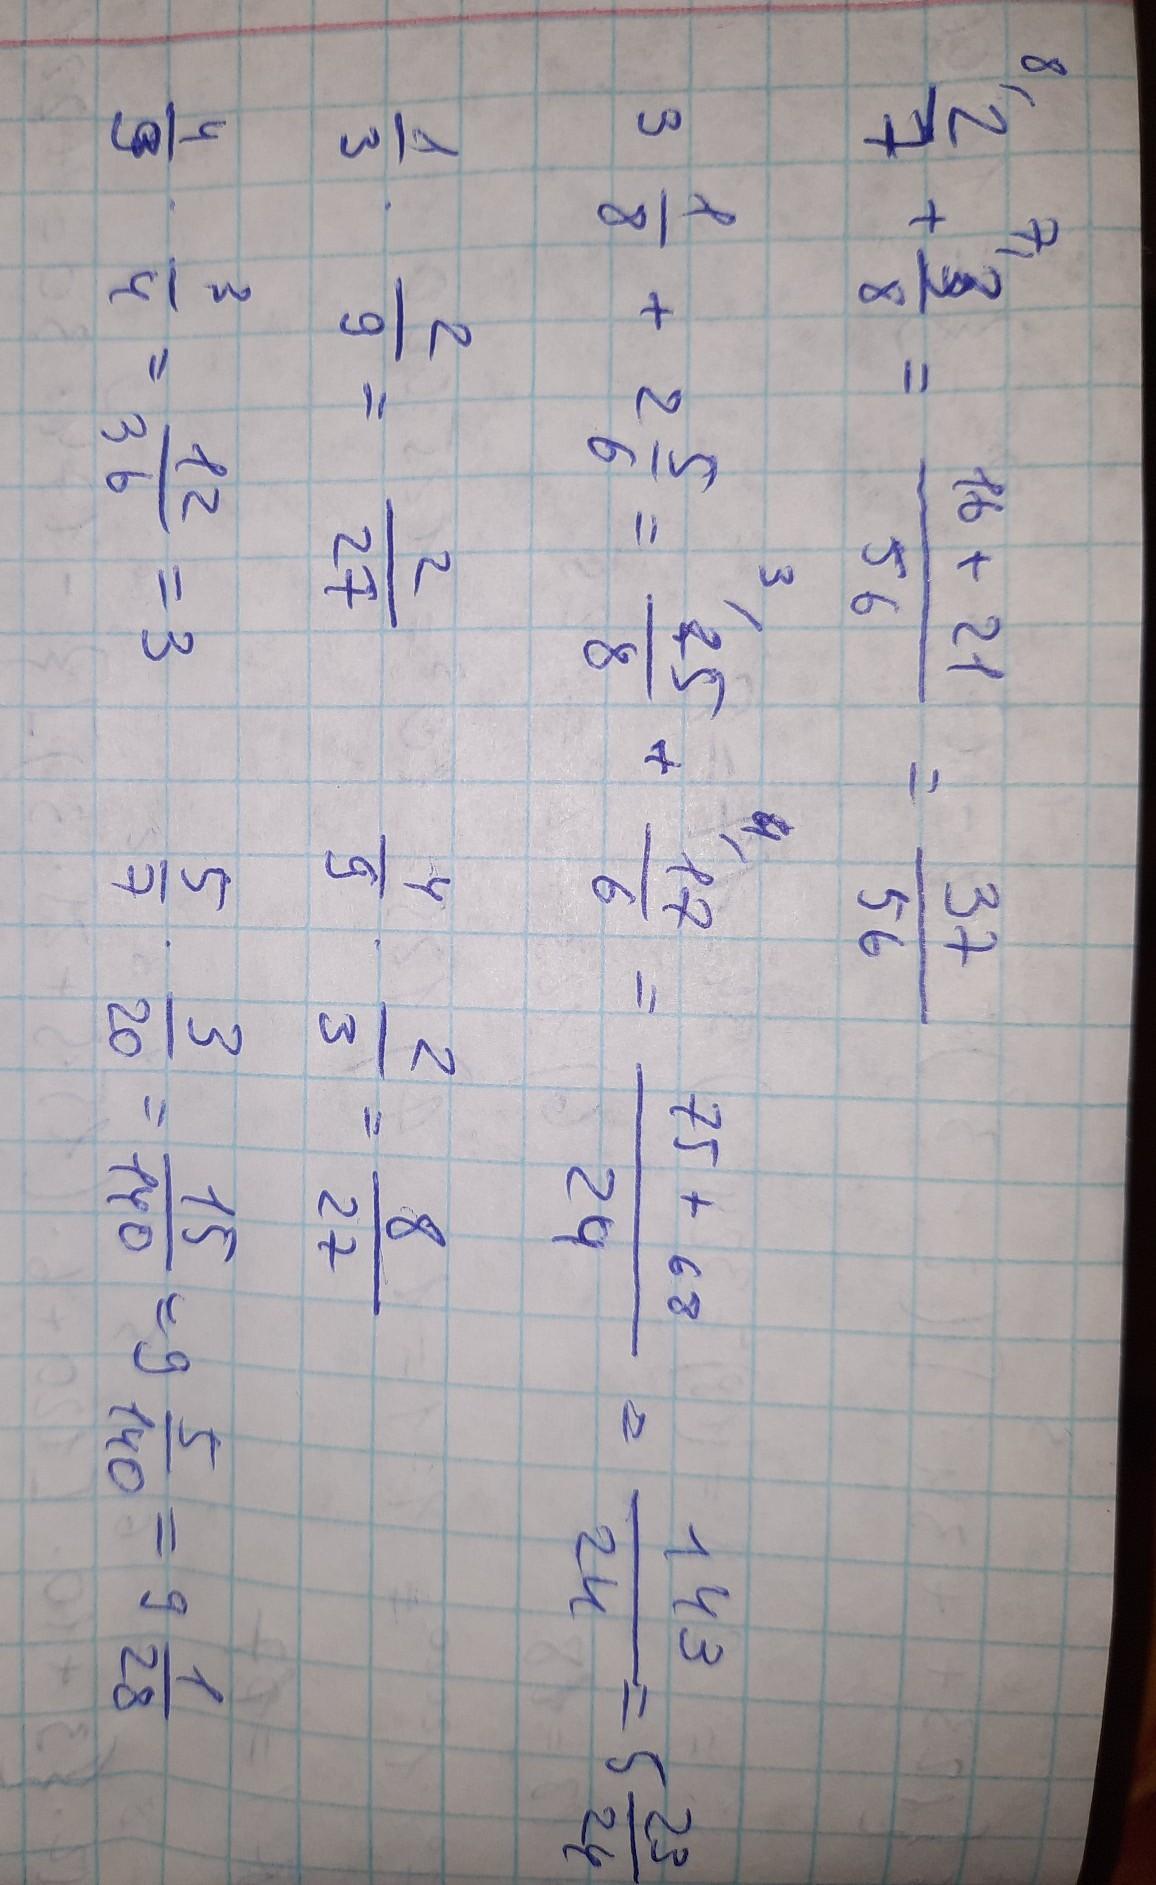 8/ 2/7 + 7/ 3/8 = (16 + 21)/56 = 37/56
3 1/8 + 2 5/6 = 3/ 25/8 + 4/ 17/6 = (75 + 68)/24 = 143/24 = 5 23/24
1/3 · 2/9 = 2/27 4/9 · 2/3 = 8/27
4/9 · 3/4 = 12/36 = 3 5/7 · 3/20 = 15/140 = 9 5/140 = 9 1/28